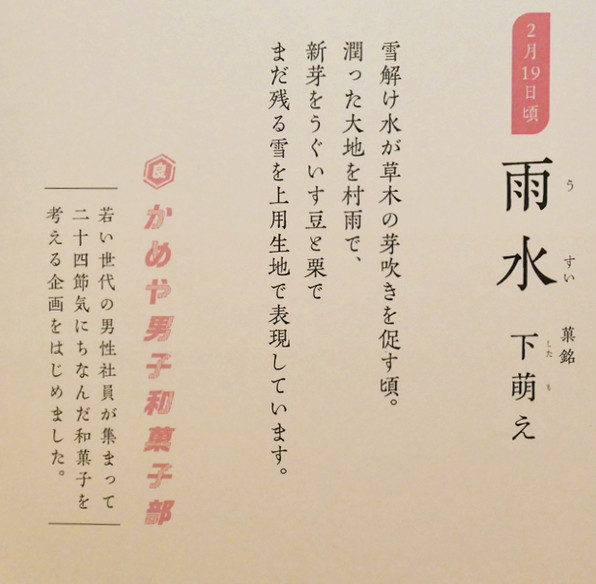 2月19日頃
雨水
うすい
菓銘
下萌え
したも
雪解け水が草木の芽吹きを促す頃。
潤った大地を村雨で、
新芽をうぐいす豆と栗で
まだ残る雪を上用生地で表現しています。
良
かめや男子和菓子部
若い世代の男性社員が集まって
二十四節気にちなんだ和菓子を
考える企画をはじめました。